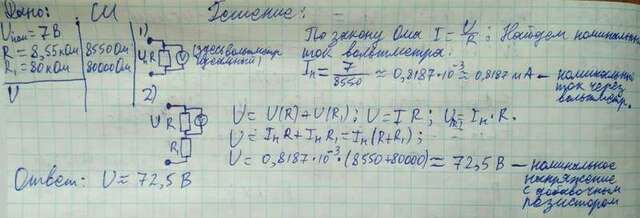 Дано: СИ Решение:
Uном = 7В
R = 8,55 кОм 8550 Ом
R₁ = 80 кОм 80000 Ом
U
1)
U R V (здесь вольтметр идеальный)
По закону Ома I = U/R; Найдем номинальный
ток вольтметра:
Iн = 7/8550 ≈ 0,8187·10⁻³ ≈ 0,8187 мА – номинальный
ток через
вольтметр.
2)
U R V
R₁
U = U(R) + U(R₁); U = I R; = Iн·R.
U = Iн R + Iн R₁ = Iн (R + R₁);
U = 0,8187·10⁻³·(8550 + 80000) ≈ 72,5 В – номинальное
напряжение
с добавочным
резистором
Ответ: U ≈ 72,5 В